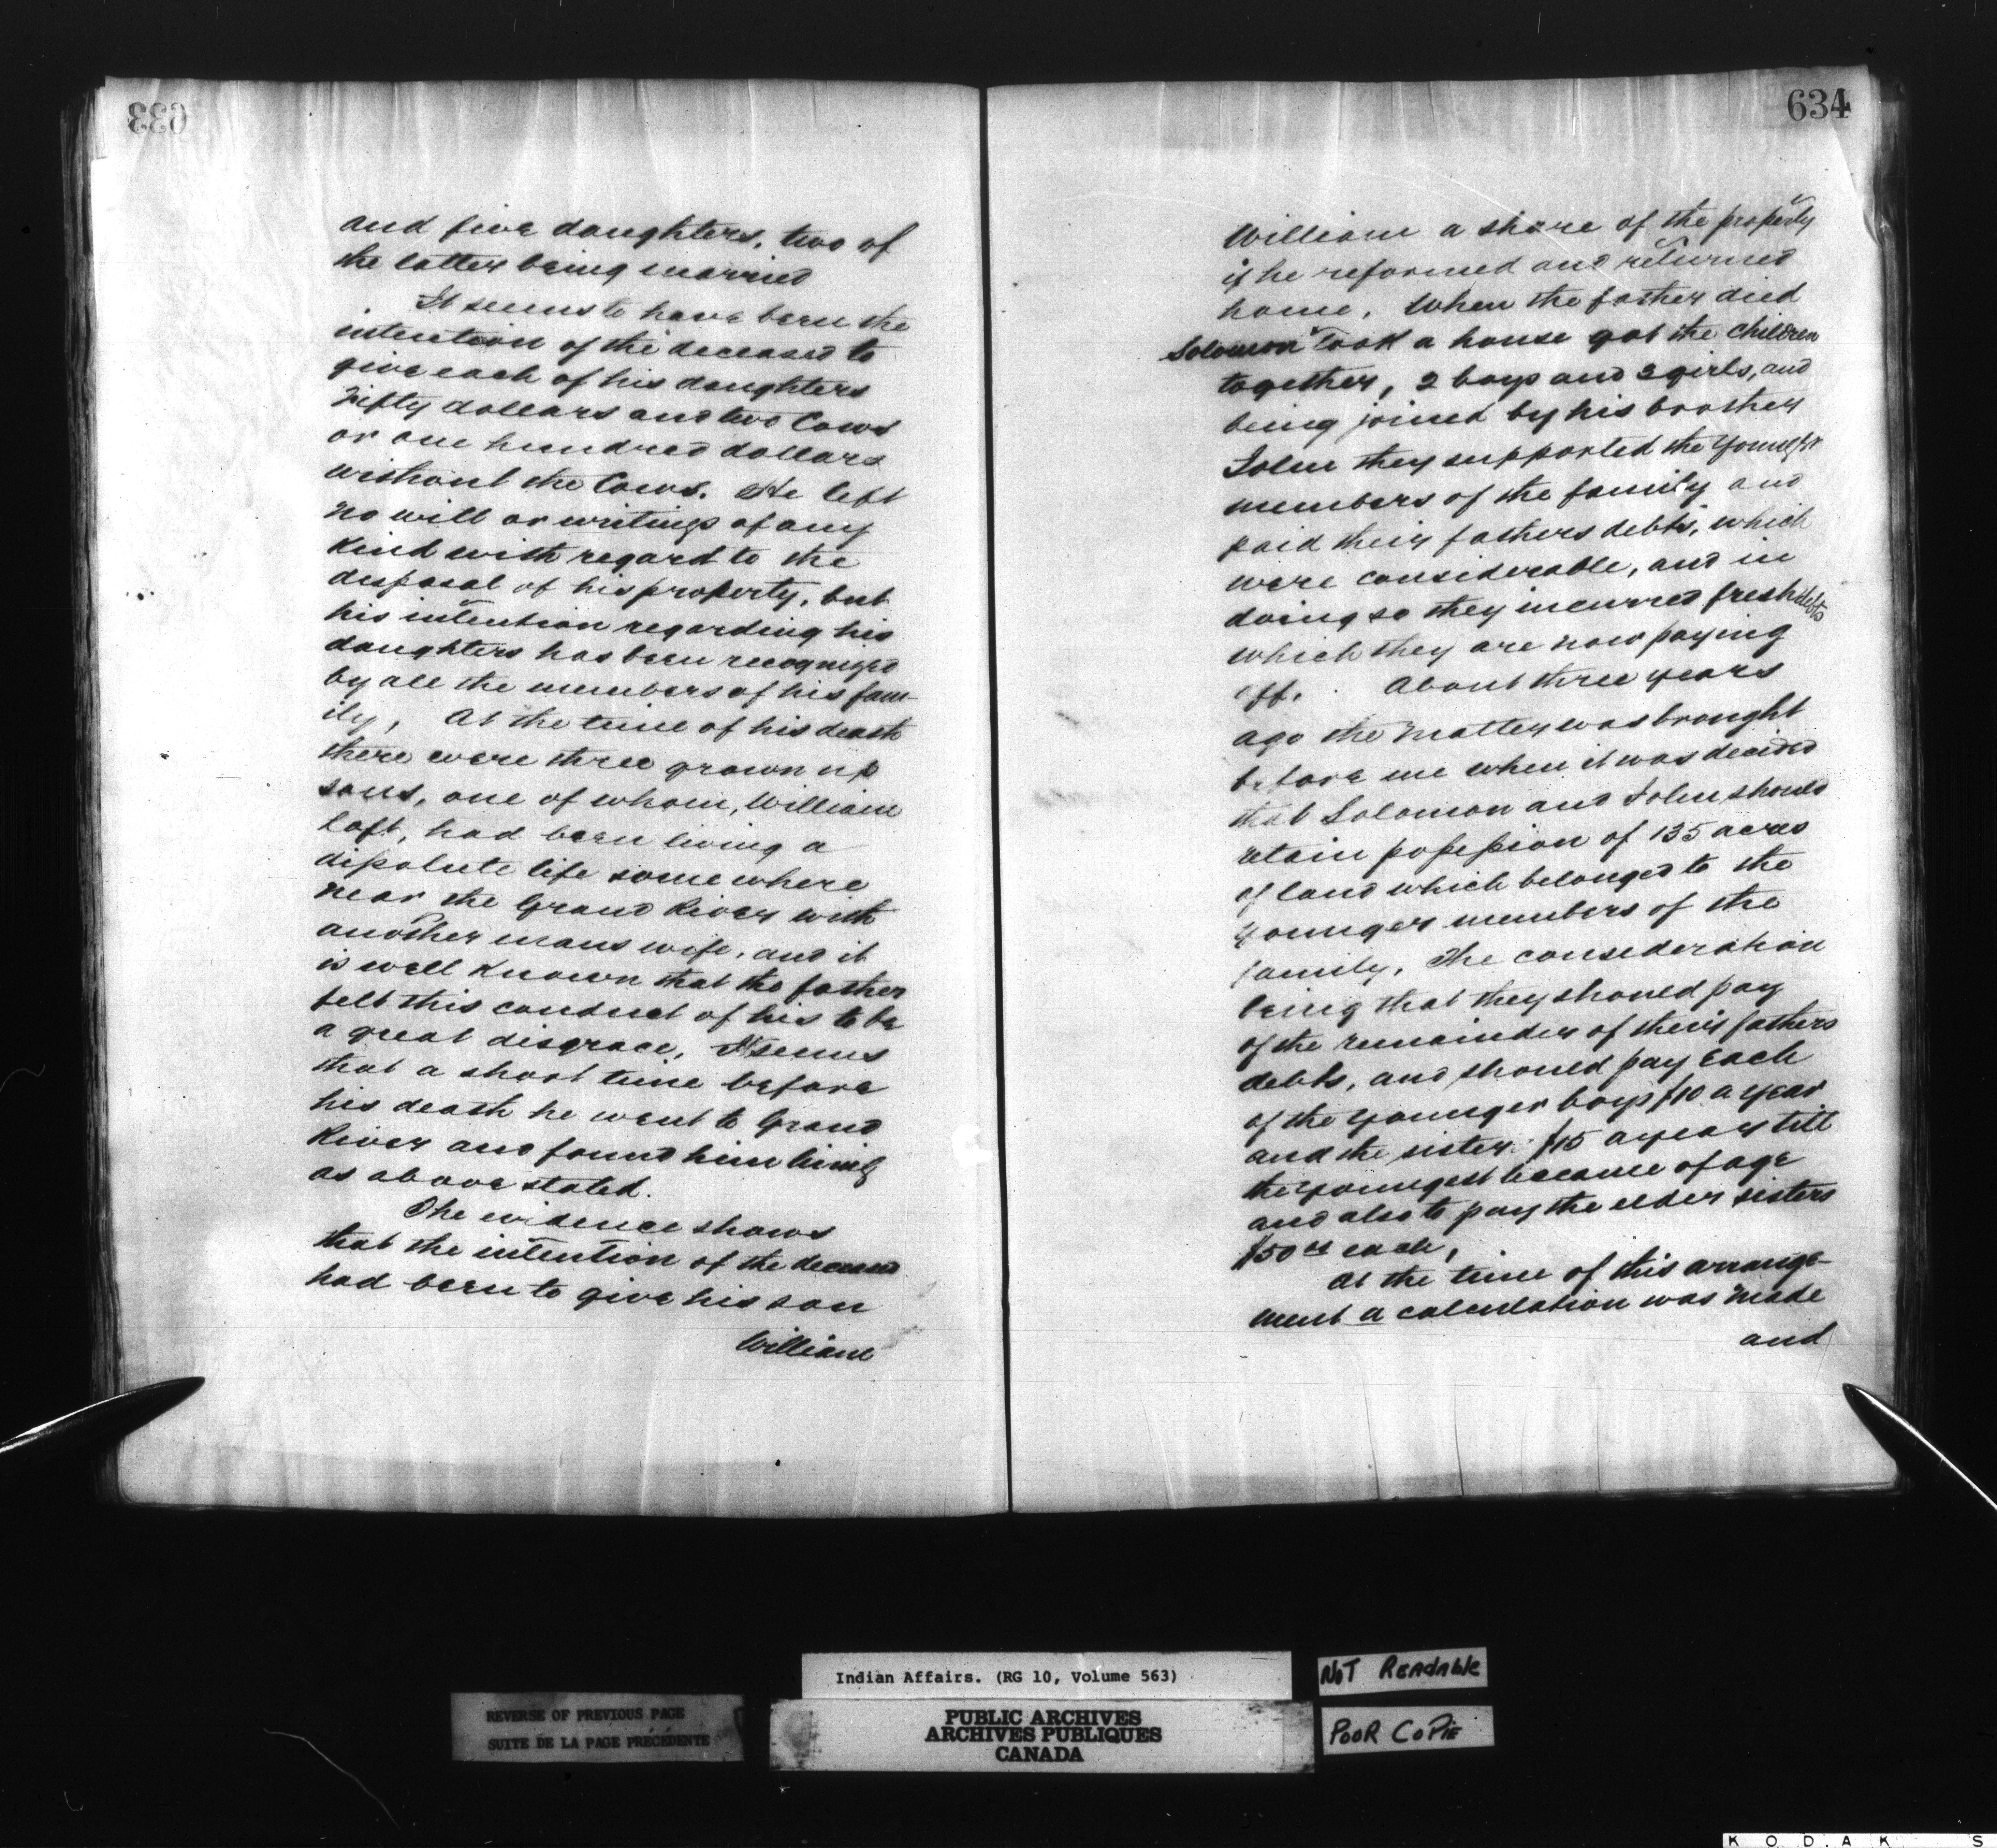 633
and five daughters, two of
the latter being married
It seems to have been the
intention of the deceased to
give each of his daughters
Fifty dollars and two Cows
or one hundred dollars
without the Cows. He left
no will or writings of any
kind with regard to the
disposal of his property, but
his intention regarding his
daughters has been recognized
by all the members of his fam-
ily, At the time of his death
there were three grown up
sons, one of whom, William
Loft, had been living a
dissolute life somewhere
near the Grand River with
another mans wife, and it
is well known that the father
felt this conduct of his to be
a great disgrace, It seems
that a short time before
his death he went to Grand
River and found him living
as above stated.
The evidence shows
that the intention of the deceased
had been to give his son
William
634
William a share of the property
if he reformed and returned
home. When the father died
Solomon took a house got the children
together, 2 boys and 2 girls, and
being joined by his brother
John they supported the youngest
members of the family and
paid their fathers debts, which
were considerable, and in
doing so they incurred fresh debts
which they are now paying
off. About three years
ago the matter was brought
before me when it was decided
that Solomon and John should
retain possession of 135 acres
of land which belonged to the
younger members of the
family, The consideration
being that they should pay
of the remainder of their fathers
debts, and should pay each
of the younger boys $10 a year
and the sister $15 a year till
the youngest became of age
and also to pay the elder sisters
$50 each,
At the time of this arrange-
ment a calculation was made
and
Indian Affairs. (RG 10, Volume 563)
PUBLIC ARCHIVES
ARCHIVES PUBLIQUES
CANADA
REVERSE OF PREVIOUS PAGE
SUITE DE LA PAGE PRÉCÉDENTE
NOT Readable
POOR COPIE
KODAK S